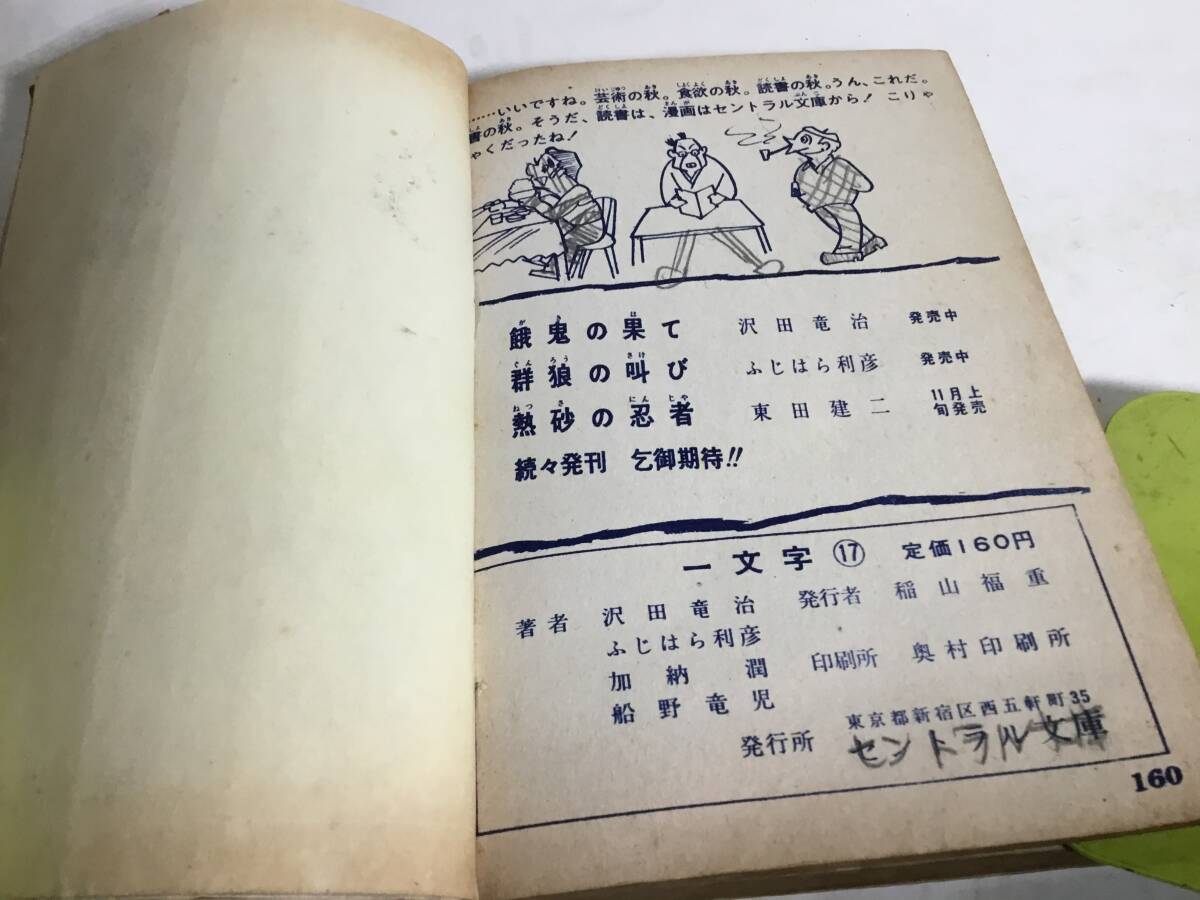 ……いいですね。芸術の秋。食欲の秋。読書の秋。うん、これだ。
書の秋。そうだ、読書は、漫画はセントラル文庫から！ こりゃ
ゃくだったね！
餓鬼の果て 沢田竜治 発売中
群狼の叫び ふじはら利彦 発売中
熱砂の忍者 東田建二 11月上旬発売
続々発刊 乞御期待!!
一文字 ⑰ 定価160円
著者 沢田竜治 発行者 稲山福重
ふじはら利彦
加納潤 印刷所 奥村印刷所
船野竜児
東京都新宿区西五軒町35
発行所 セントラル文庫
160